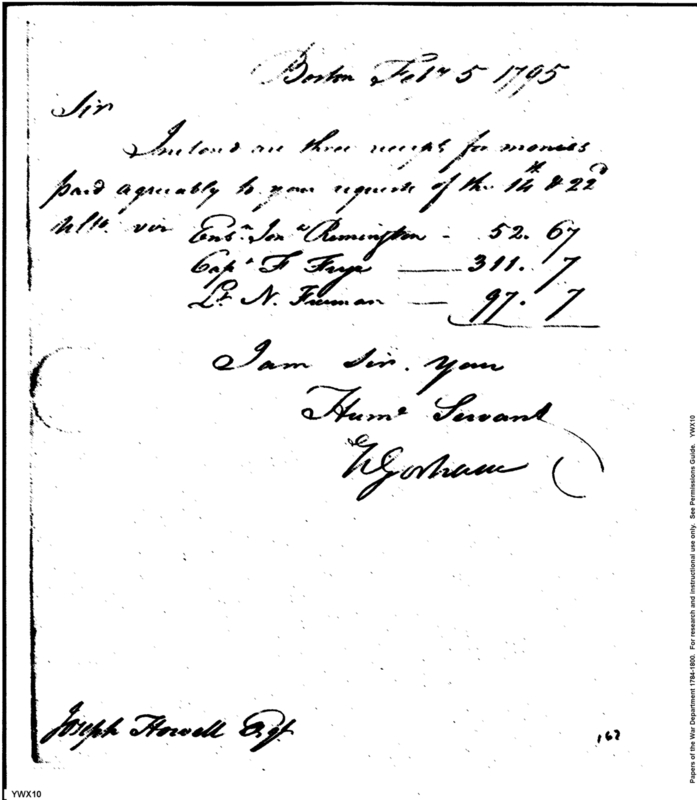 Boston Feby 5 1795
Sir
Inclosd are three receipts for monies
paid agreeably to your requests of the 14th & 22d
Ulto. viz Ensn. Jona Remington - 52. 67
Capt F Frye — 311. 7
Lt. N. Freeman — 97. 7
I am Sir. your
Hume Servant
N Gorham
Joseph Howell Esqr
162
YWX10
Papers of the War Department 1784-1800. For research and instructional use only. See Permissions Guide. YWX10